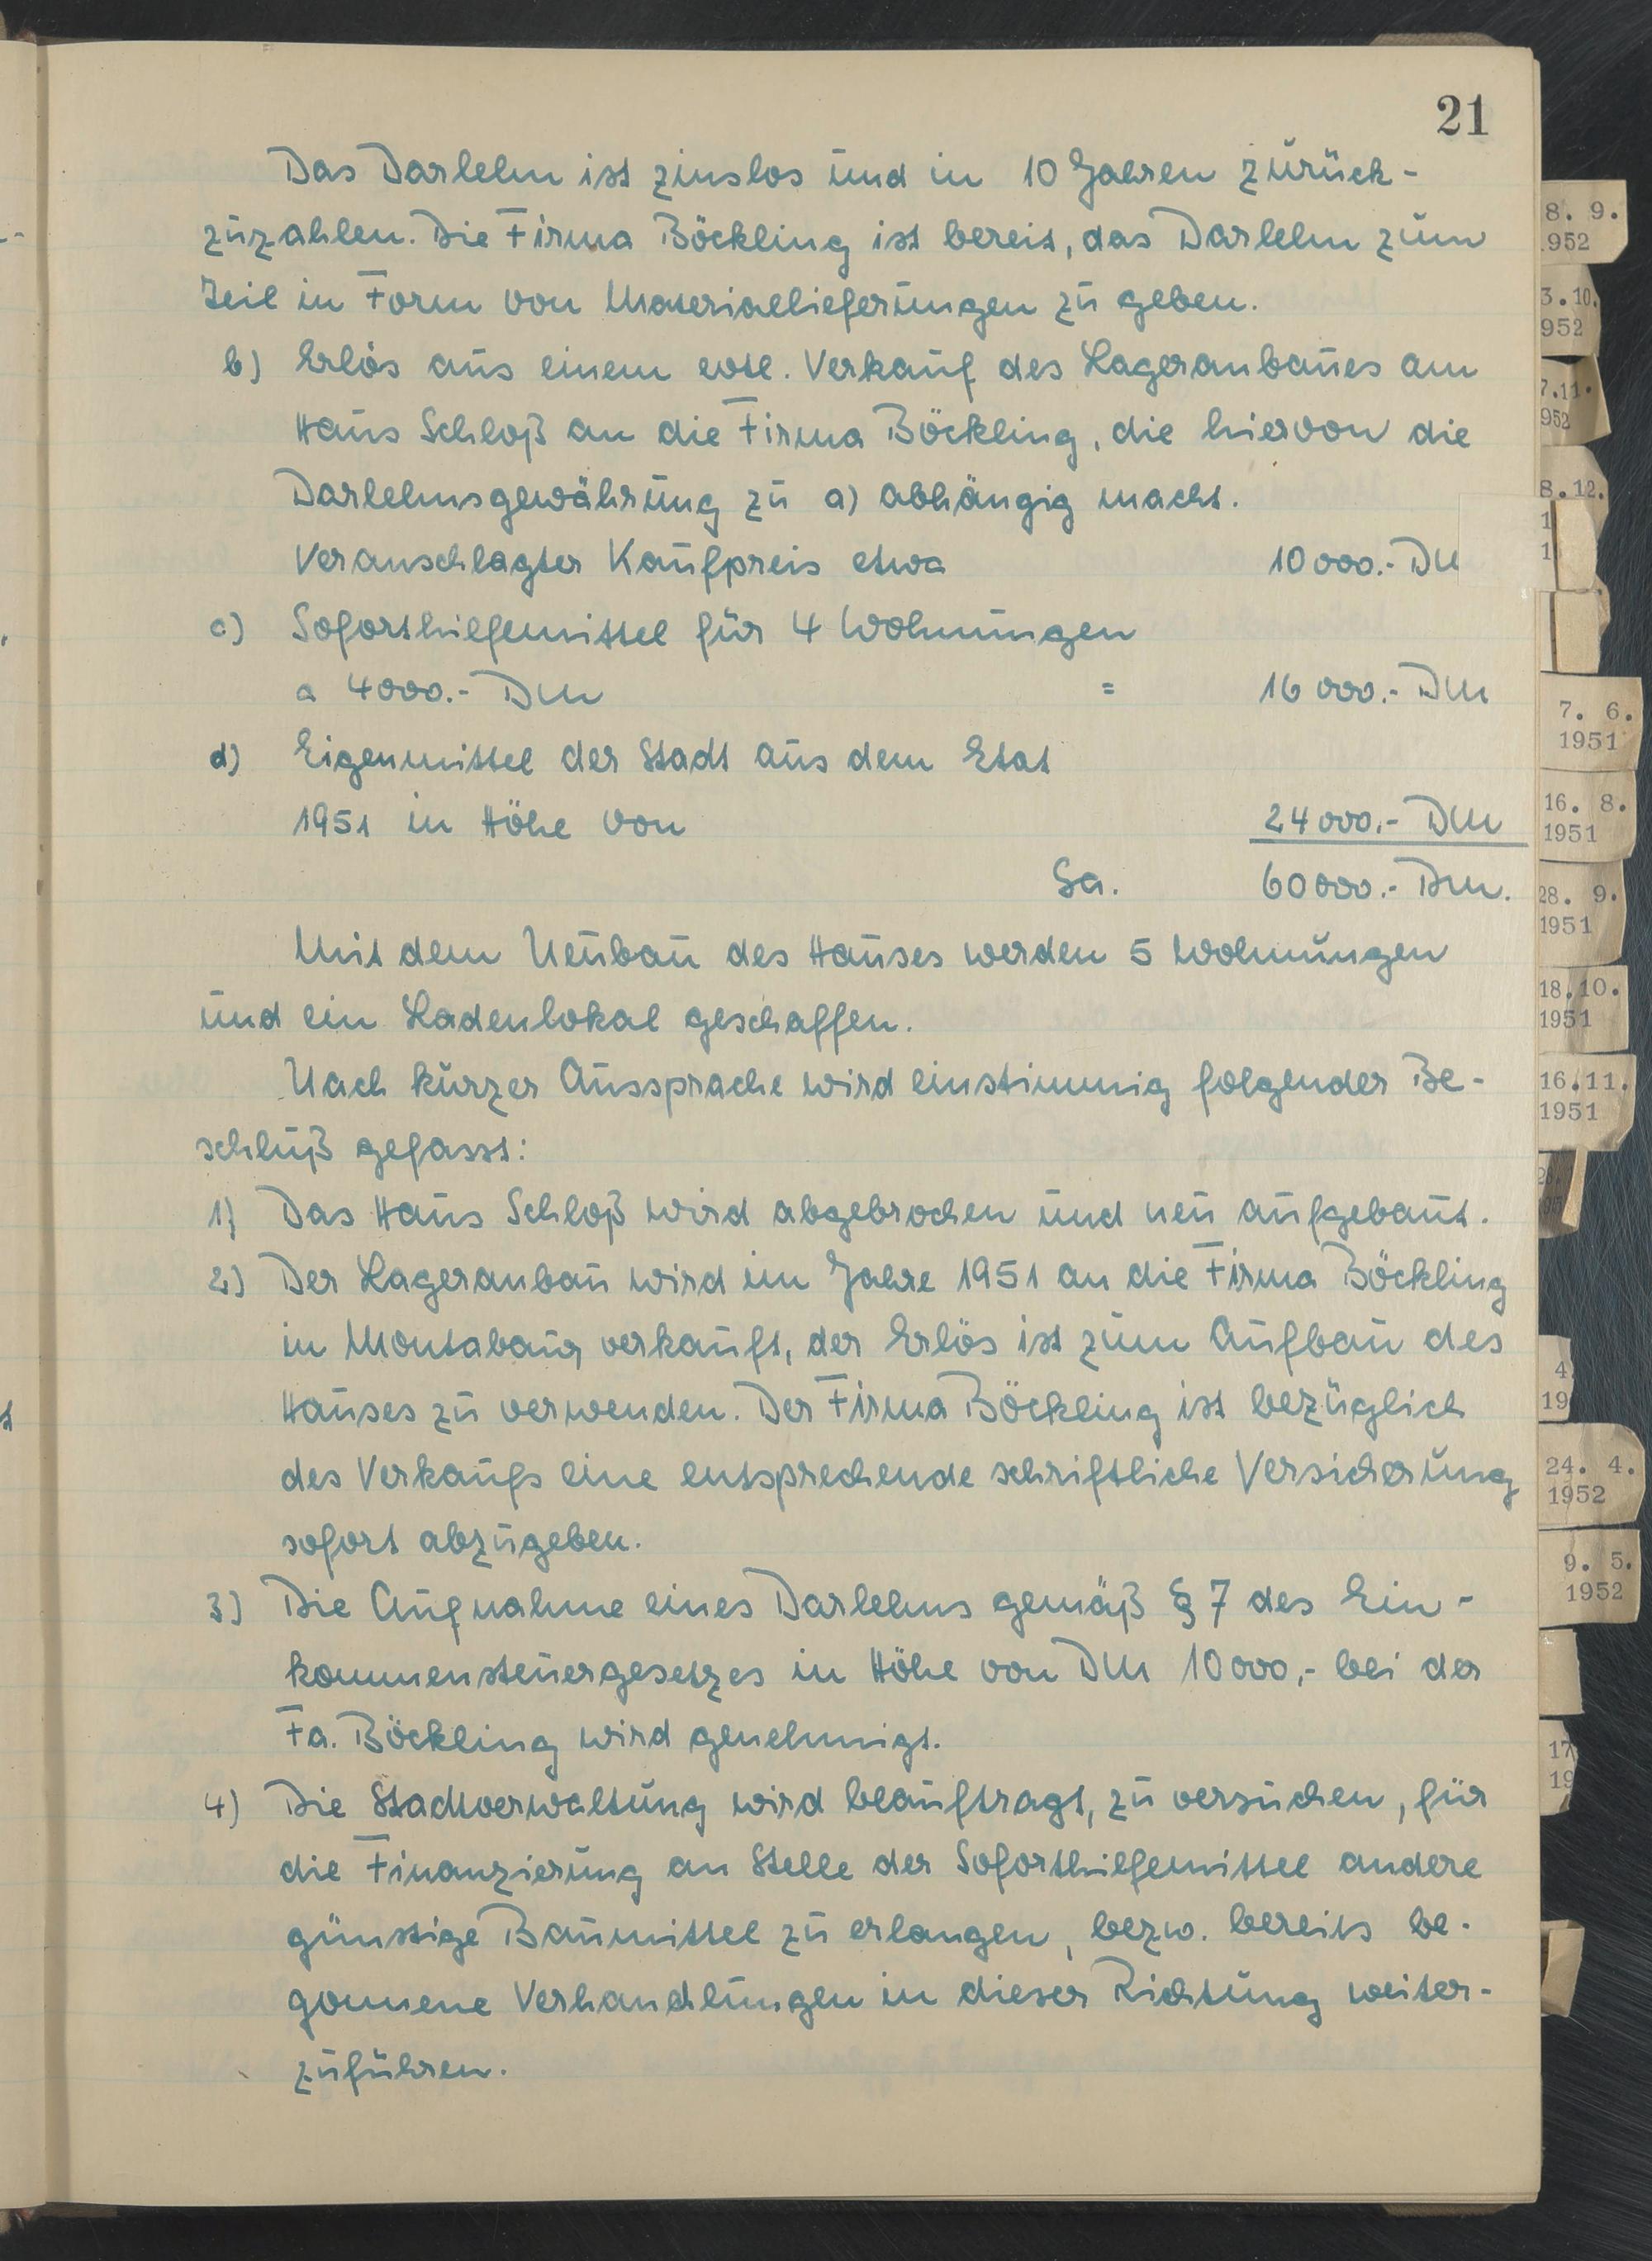 21
Das Darlehn ist zinslos und in 10 Jahren zurück-
zuzahlen. Die Firma Böckling ist bereit, das Darlehn zum
Teil in Form von Materiallieferungen zu geben.
b) Erlös aus einem evtl. Verkauf des Lageranbaues am
Haus Schloß an die Firma Böckling, die hiervon die
Darlehnsgewährung zu a) abhängig macht.
Veranschlagter Kaufpreis etwa 10 000.- DM
c) Soforthilfemittel für 4 Wohnungen
a 4000.- DM = 16 000.- DM
d) Eigenmittel der Stadt aus dem Etat
1951 in Höhe von 24 000.- DM
Sa. 60 000.- DM.
Mit dem Neubau des Hauses werden 5 Wohnungen
und ein Ladenlokal geschaffen.
Nach kurzer Aussprache wird einstimmig folgender Be-
schluß gefasst:
1) Das Haus Schloß wird abgebrochen und neu aufgebaut.
2) Der Lageranbau wird im Jahre 1951 an die Firma Böckling
in Montabaur verkauft, der Erlös ist zum Aufbau des
Hauses zu verwenden. Der Firma Böckling ist bezüglich
des Verkaufs eine entsprechende schriftliche Versicherung
sofort abzugeben.
3) Die Aufnahme eines Darlehns gemäß § 7 des Ein-
kommensteuergesetzes in Höhe von DM 10 000,- bei der
Fa. Böckling wird genehmigt.
4) Die Stadtverwaltung wird beauftragt, zu versuchen, für
die Finanzierung an Stelle der Soforthilfemittel andere
günstige Baumittel zu erlangen, bezw. bereits be-
gonnene Verhandlungen in dieser Richtung weiter-
zuführen.
8. 9.
1952
3.10.
952
7.11.
952
8.12.
1
1
7. 6.
1951
16. 8.
1951
28. 9.
1951
18.10.
1951
16.11.
1951
4
19
24. 4.
1952
9. 5.
1952
17
19